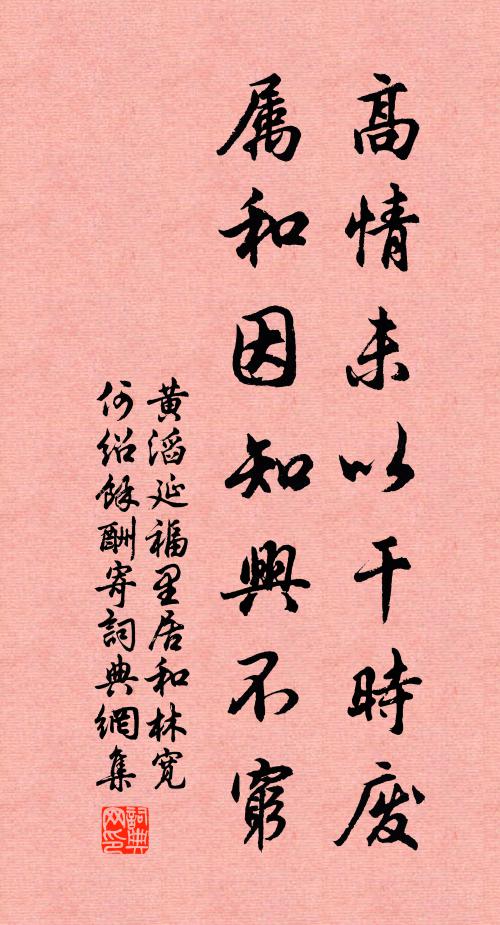 高情未以干時廢
属和因知興不窮
黄滔延福里居和林寬
何绍餘酬寄詞典網集
詞典网印